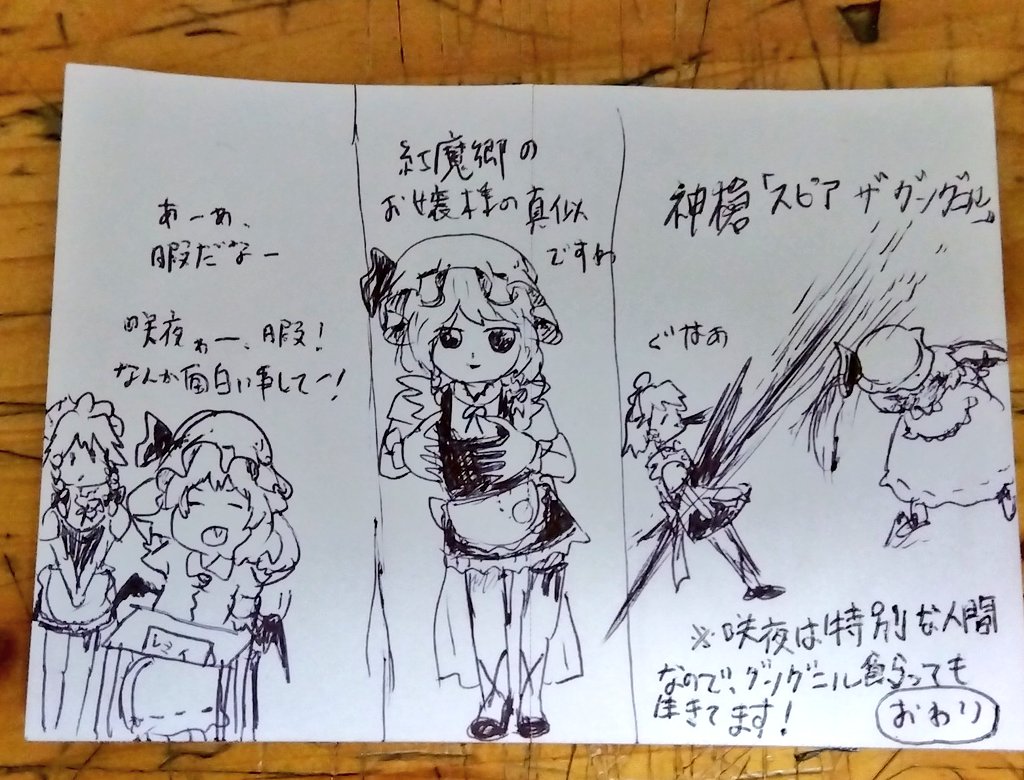 あーあ、
暇だなー
咲夜ぁー、暇！
なんか面白い事してー！
レミィ
紅魔郷の
お嬢様の真似
ですわ
神槍「スピア ザ グングニル」
ぐはあ
※咲夜は特別な人間
なので、グングニル食らっても
生きてます！
おわり